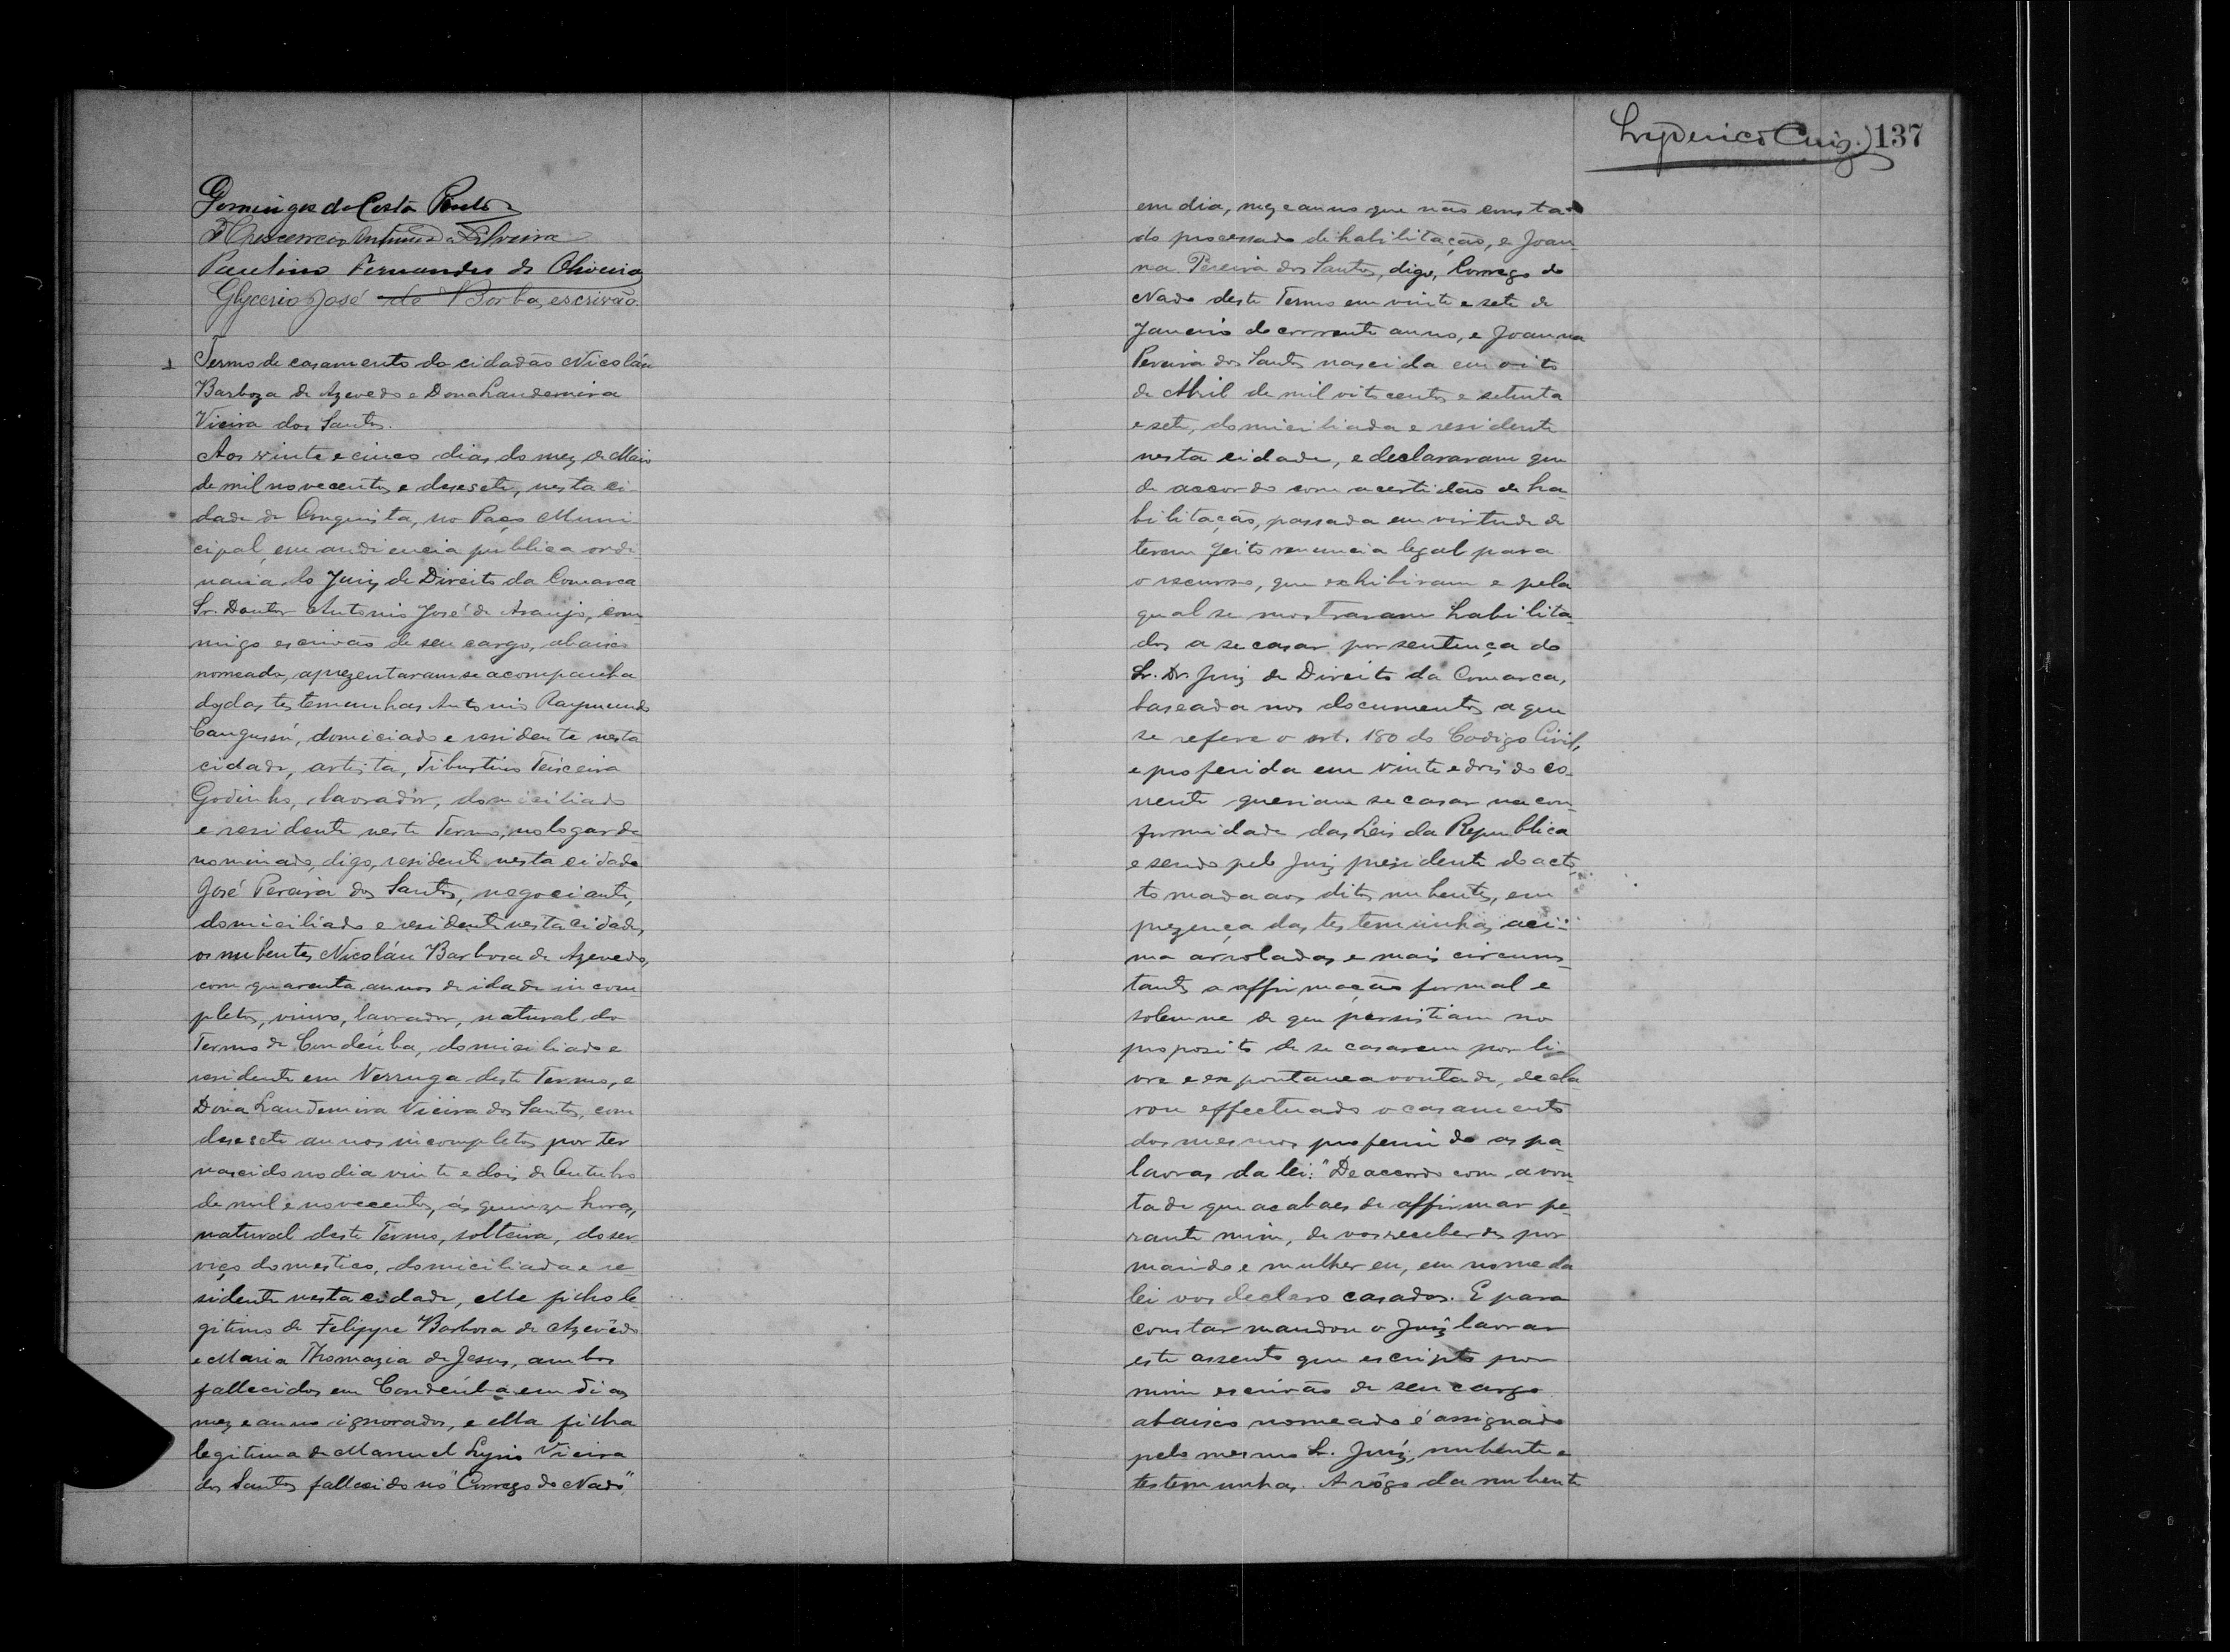 137
Domingos da Costa Pinto
Crescencio Antunes da Silveira
Paulino Fernandes de Oliveira
Glycerio José de Borba, escrivão
Termo de casamento do cidadão Nicoláu
Barboza de Azevedo e Dona Laudemira
Vieira dos Santos.
Aos vinte e cinco dias do mez de Maio
de mil novecentos e desesete, nesta ci-
dade de Conquista, no Paço Muni-
cipal, em audiencia publica ordi
naria do Juiz de Direito da Comarca
Sr. Doutor Antonio José de Araujo, com-
migo escrivão de seu cargo, abaixo
nomeado, aprezentaram se acompanha
dos das testemunhas Antonio Raymundo
Cangussú, domiciado e residente nesta
cidade, artista, Tiburtino Teixeira
Godinho, lavrador, domiciliado
e residente neste Termo, no logar de
nominado, digo, residente nesta cidade
José Pereira dos Santos, negociante,
domiciliado e residente nesta cidade,
os nubentes Nicoláu Barbosa de Azevedo,
com quarenta annos de idade incom-
pletos, viuvo, lavrador, natural do
Termo de Condeúba, domiciliado e
residente em Verruga deste Termo, e
Dona Laudemira Vieira dos Santos, com
desesete annos incompletos por ter
nascido no dia vinte e dois de Outubro
de mil e novecentos, ás quinze horas,
natural deste Termo, solteira, do ser-
viço domestico, domiciliada e re-
sidente nesta cidade, elle filho le
gitimo de Felippe Barbosa de Azevêdo
e Maria Thomazia de Jesus, ambos
fallecidos em Condeúba em dias
mez e anno ignorados, e ella filha
legitima de Manuel Lyrio Vieira
dos Santos fallecido no "Corrego do Nado"
em dia, mez e anno que não consta
do processado de habilitação, e Joan-
na Pereira dos Santos, digo, Corrego do
Nado deste Termo em vinte e sete de
Janeiro do corrente anno, e Joanna
Pereira dos Santos nascida em oito
de Abril de mil oitocentos e setenta
e sete, domiciliada e residente
nesta cidade, e declararam que
de accordo com a certidão de ha-
bilitação, passada em virtude de
terem feito renuncia legal para
o recurso, que exhibiram e pela
qual se mostraram habilita-
dos a se casar por sentença do
Sr. Dr. Juiz de Direito da Comarca,
baseada nos documentos a que
se refere o art. 180 do Codigo Civil,
e proferida em vinte e dois do co-
rrente queriam se casar na con-
formidade das Leis da Republica
e sendo pelo Juiz presidente do acto,
tomada aos ditos nubentes, em
prezença das testemunhas aci-
ma arroladas e mais circums-
tantes a affirmação formal e
solemne de que persistiam no
proposito de se casarem por li-
vre e expontanea vontade, decla
rou effectuado o casamento
dos mesmos proferindo as pa-
lavras da lei: "De accordo com a von-
tade que acabaes de affirmar pe-
rante mim, de vos receberdes por
marido e mulher eu, em nome da
lei vos declaro casados. E para
constar mandou o Juiz lavrar
este assento que escripto por
mim escrivão de seu cargo
abaixo nomeado é assignado
pelo mesmo Sr. Juiz, nubente e
testemunhas. A rôgo da nubente